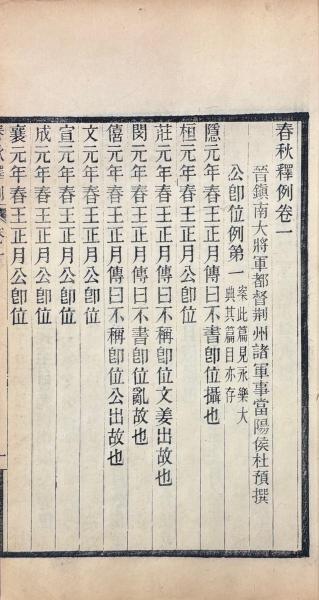 春秋釋例卷一
晉鎮南大將軍都督荆州諸軍事當陽侯杜預撰
公卽位例第一
案此篇見永樂大
典其篇目亦存
隱元年春王正月傳曰不書卽位攝也
桓元年春王正月公卽位
莊元年春王正月傳曰不稱卽位文姜出故也
閔元年春王正月傳曰不書卽位亂故也
僖元年春王正月傳曰不稱卽位公出故也
文元年春王正月公卽位
宣元年春王正月公卽位
成元年春王正月公卽位
襄元年春王正月公卽位